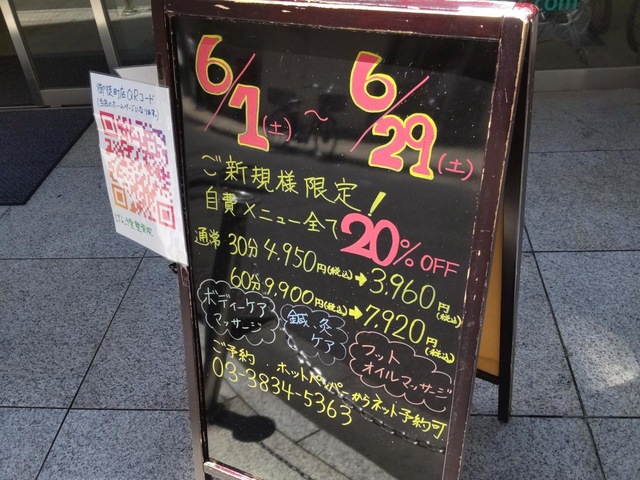 御徒町店QRコード
(当店のホームページになります。)
6/1(土)～6/29(土)
ご新規様限定!
自費メニュー全て20%OFF
通常 30分 4.950円(税込)→3.960円(税込)
60分 9.900円(税込)→7.920円(税込)
ボディーケア
マッサージ
鍼、灸
ケア
フット
オイルマッサージ
ご予約:ホットペッパーからネット予約可
03-3834-5363